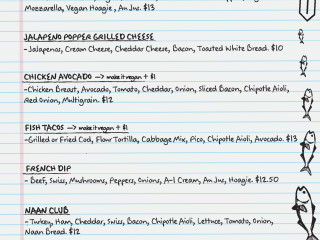 Mozzarella, Vegan Hoagie, Au Jus. $13
JALAPENO POPPER GRILLED CHEESE
-Jalapenos, Cream Cheese, Cheddar Cheese, Bacon, Toasted White Bread. $10
CHICKEN AVOCADO --> make it vegan + $1
-Chicken Breast, Avocado, Tomato, Cheddar, Onion, Sliced Bacon, Chipotle Aioli,
Red Onion, Multigrain. $12
FISH TACOS --> make it vegan + $1
-Grilled or Fried Cod, Flour Tortilla, Cabbage Mix, Pico, Chipotle Aioli, Avocado. $13
FRENCH DIP
- Beef, Swiss, Mushrooms, Peppers, Onions, A-1 Cream, Au Jus, Hoagie. $12.50
NAAN CLUB
- Turkey, Ham, Cheddar, Swiss, Bacon, Chipotle Aioli, Lettuce, Tomato, Onion,
Naan Bread. $12